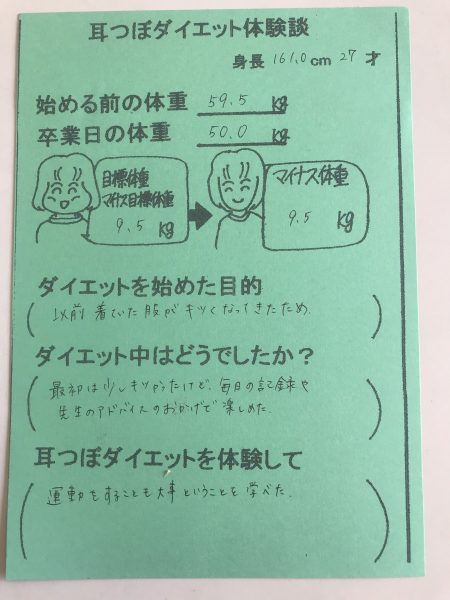 耳つぼダイエット体験談
身長 161.0 cm 27 才
始める前の体重 59.5 kg
卒業日の体重 50.0 kg
目標体重
マイナス目標体重
9.5 kg
マイナス体重
9.5 kg
ダイエットを始めた目的
以前着ていた服がキツくなってきたため。
ダイエット中はどうでしたか？
最初は少しキツかったけど、毎日の記録や
先生のアドバイスのおかげで楽しめた。
耳つぼダイエットを体験して
運動をすることも大事ということを学べた。